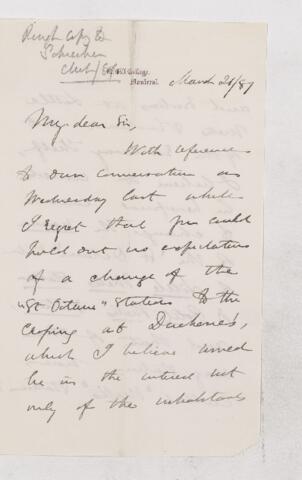 copy to
Schreiber
McGill College,
Montreal.
March 26/87
My dear Sir,
With reference
to our conversation on
Wednesday last while
I regret that you could
hold out no expectation
of a change of the
"St Octave" Station to the
at Duchene's,
which I believe would
be in the interest not
only of the inhabitants